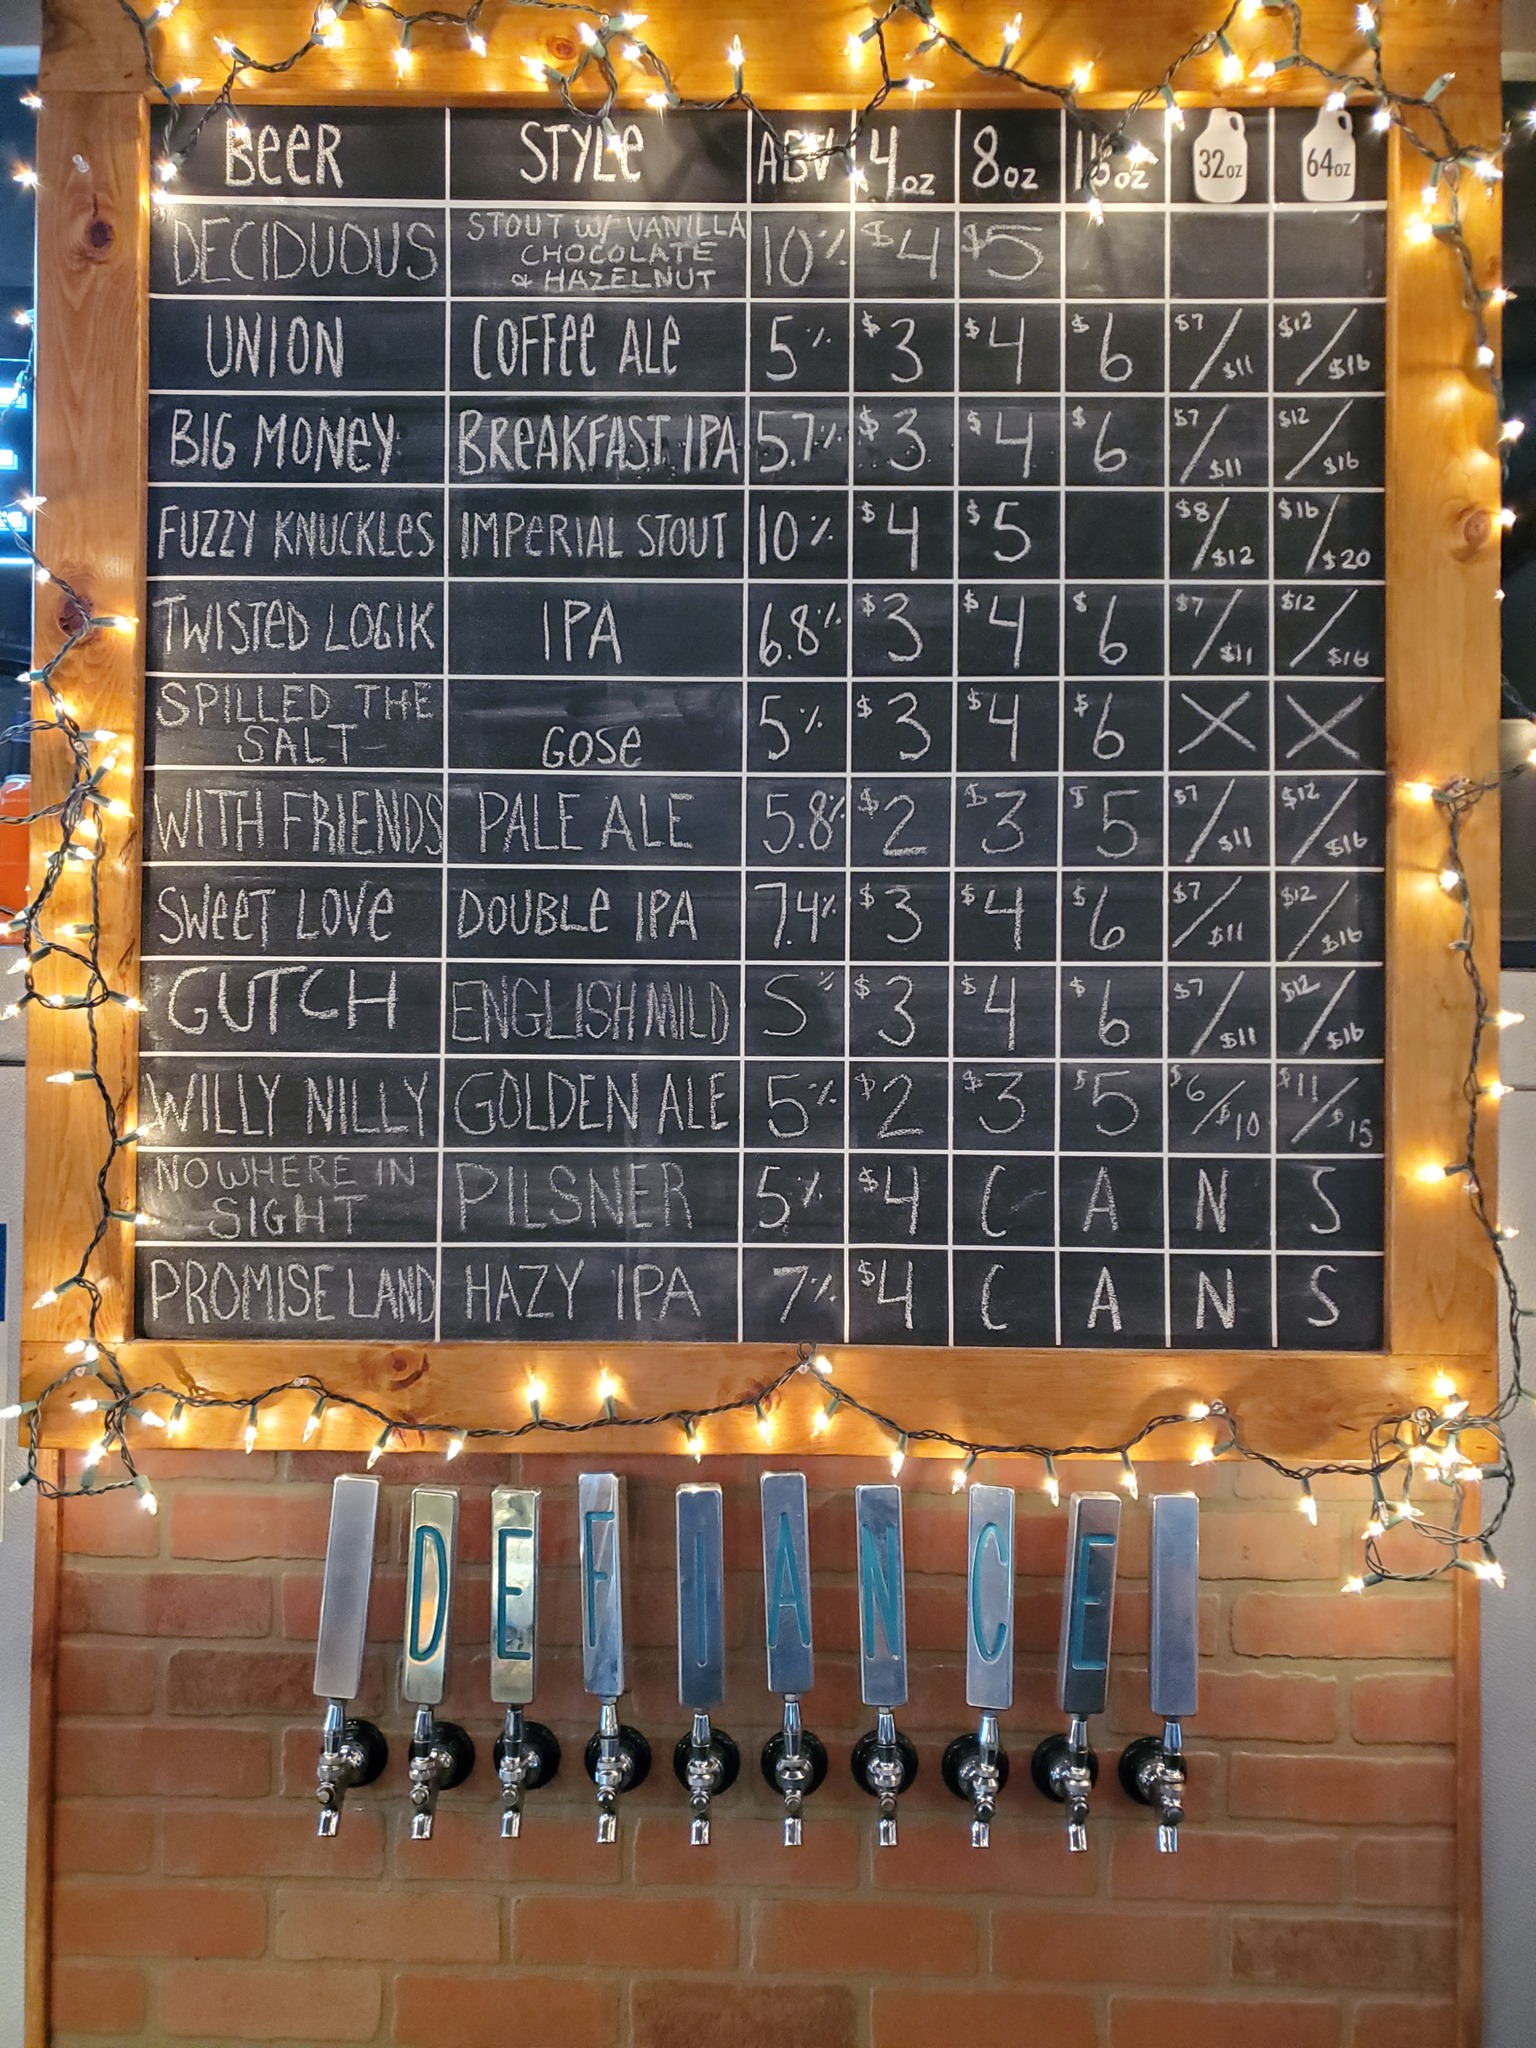 BEER STYLE ABV 4oz 8oz 16oz 32oz 64oz
DECIDUOUS STOUT W/ VANILLA CHOCOLATE & HAZELNUT 10% $4 $5
UNION COFFEE ALE 5% $3 $4 $6 $7/$11 $12/$16
BIG MONEY BREAKFAST IPA 5.7% $3 $4 $6 $7/$11 $12/$16
FUZZY KNUCKLES IMPERIAL STOUT 10% $4 $5 $8/$12 $16/$20
TWISTED LOGIK IPA 6.8% $3 $4 $6 $7/$11 $12/$16
SPILLED THE SALT GOSE 5% $3 $4 $6 X X
WITH FRIENDS PALE ALE 5.8% $2 $3 $5 $7/$11 $12/$16
SWEET LOVE DOUBLE IPA 7.4% $3 $4 $6 $7/$11 $12/$16
GUTCH ENGLISH MILD 5% $3 $4 $6 $7/$11 $12/$16
WILLY NILLY GOLDEN ALE 5% $2 $3 $5 $6/$10 $11/$15
NOWHERE IN SIGHT PILSNER 5% $4 C A N S
PROMISE LAND HAZY IPA 7% $4 C A N S
DEFIANCE